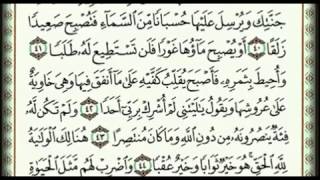 جَنَّتِكَ وَيُرْسِلَ عَلَيْهَا حُسْبَانًا مِّنَ ٱلسَّمَآءِ فَتُصْبِحَ صَعِيدًا
زَلَقًا ٤٠ أَوْ يُصْبِحَ مَآؤُهَا غَوْرًا فَلَن تَسْتَطِيعَ لَهُۥ طَلَبًا ٤١
وَأُحِيطَ بِثَمَرِهِۦ فَأَصْبَحَ يُقَلِّبُ كَفَّيْهِ عَلَىٰ مَآ أَنفَقَ فِيهَا وَهِىَ خَاوِيَةٌ
عَلَىٰ عُرُوشِهَا وَيَقُولُ يَٰلَيْتَنِى لَمْ أُشْرِكْ بِرَبِّىٓ أَحَدًا ٤٢ وَلَمْ تَكُن لَّهُۥ
فِئَةٌ يَنصُرُونَهُۥ مِن دُونِ ٱللَّهِ وَمَا كَانَ مُنتَصِرًا ٤٣ هُنَالِكَ ٱلْوَلَٰيَةُ
لِلَّهِ ٱلْحَقِّ هُوَ خَيْرٌ ثَوَابًا وَخَيْرٌ عُقْبًا ٤٤ وَٱضْرِبْ لَهُم مَّثَلَ ٱلْحَيَوٰةِ